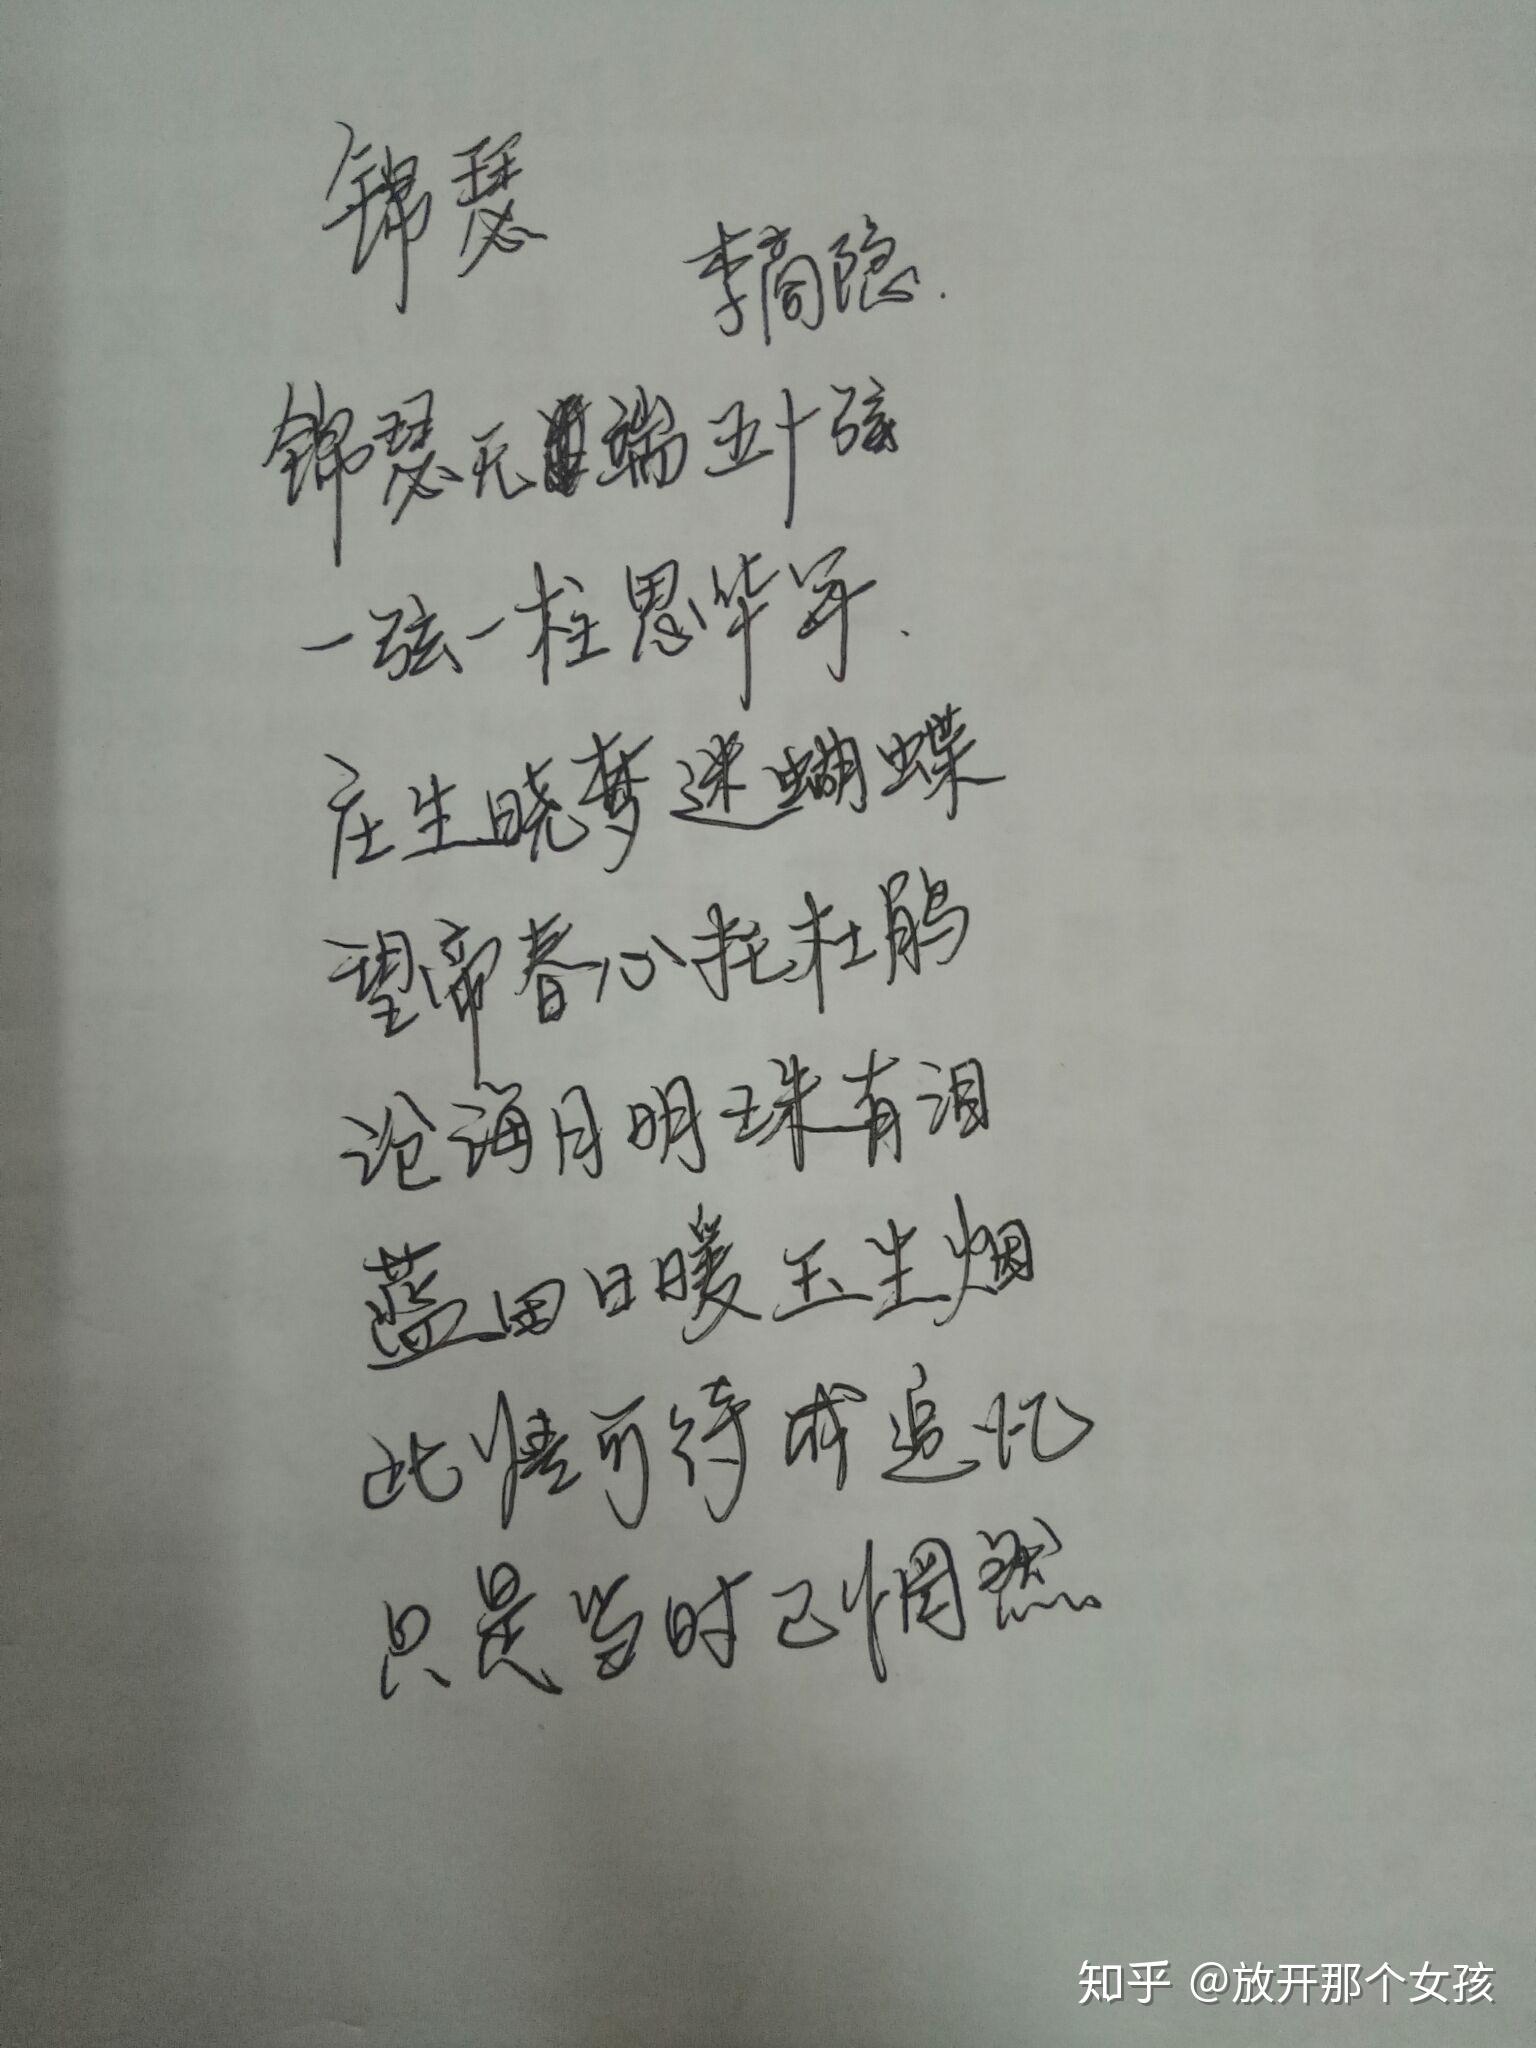 锦瑟
李商隐.
锦瑟无端五十弦
一弦一柱思华年.
庄生晓梦迷蝴蝶
望帝春心托杜鹃
沧海月明珠有泪
蓝田日暖玉生烟
此情可待成追忆
只是当时已惘然
知乎 @放开那个女孩